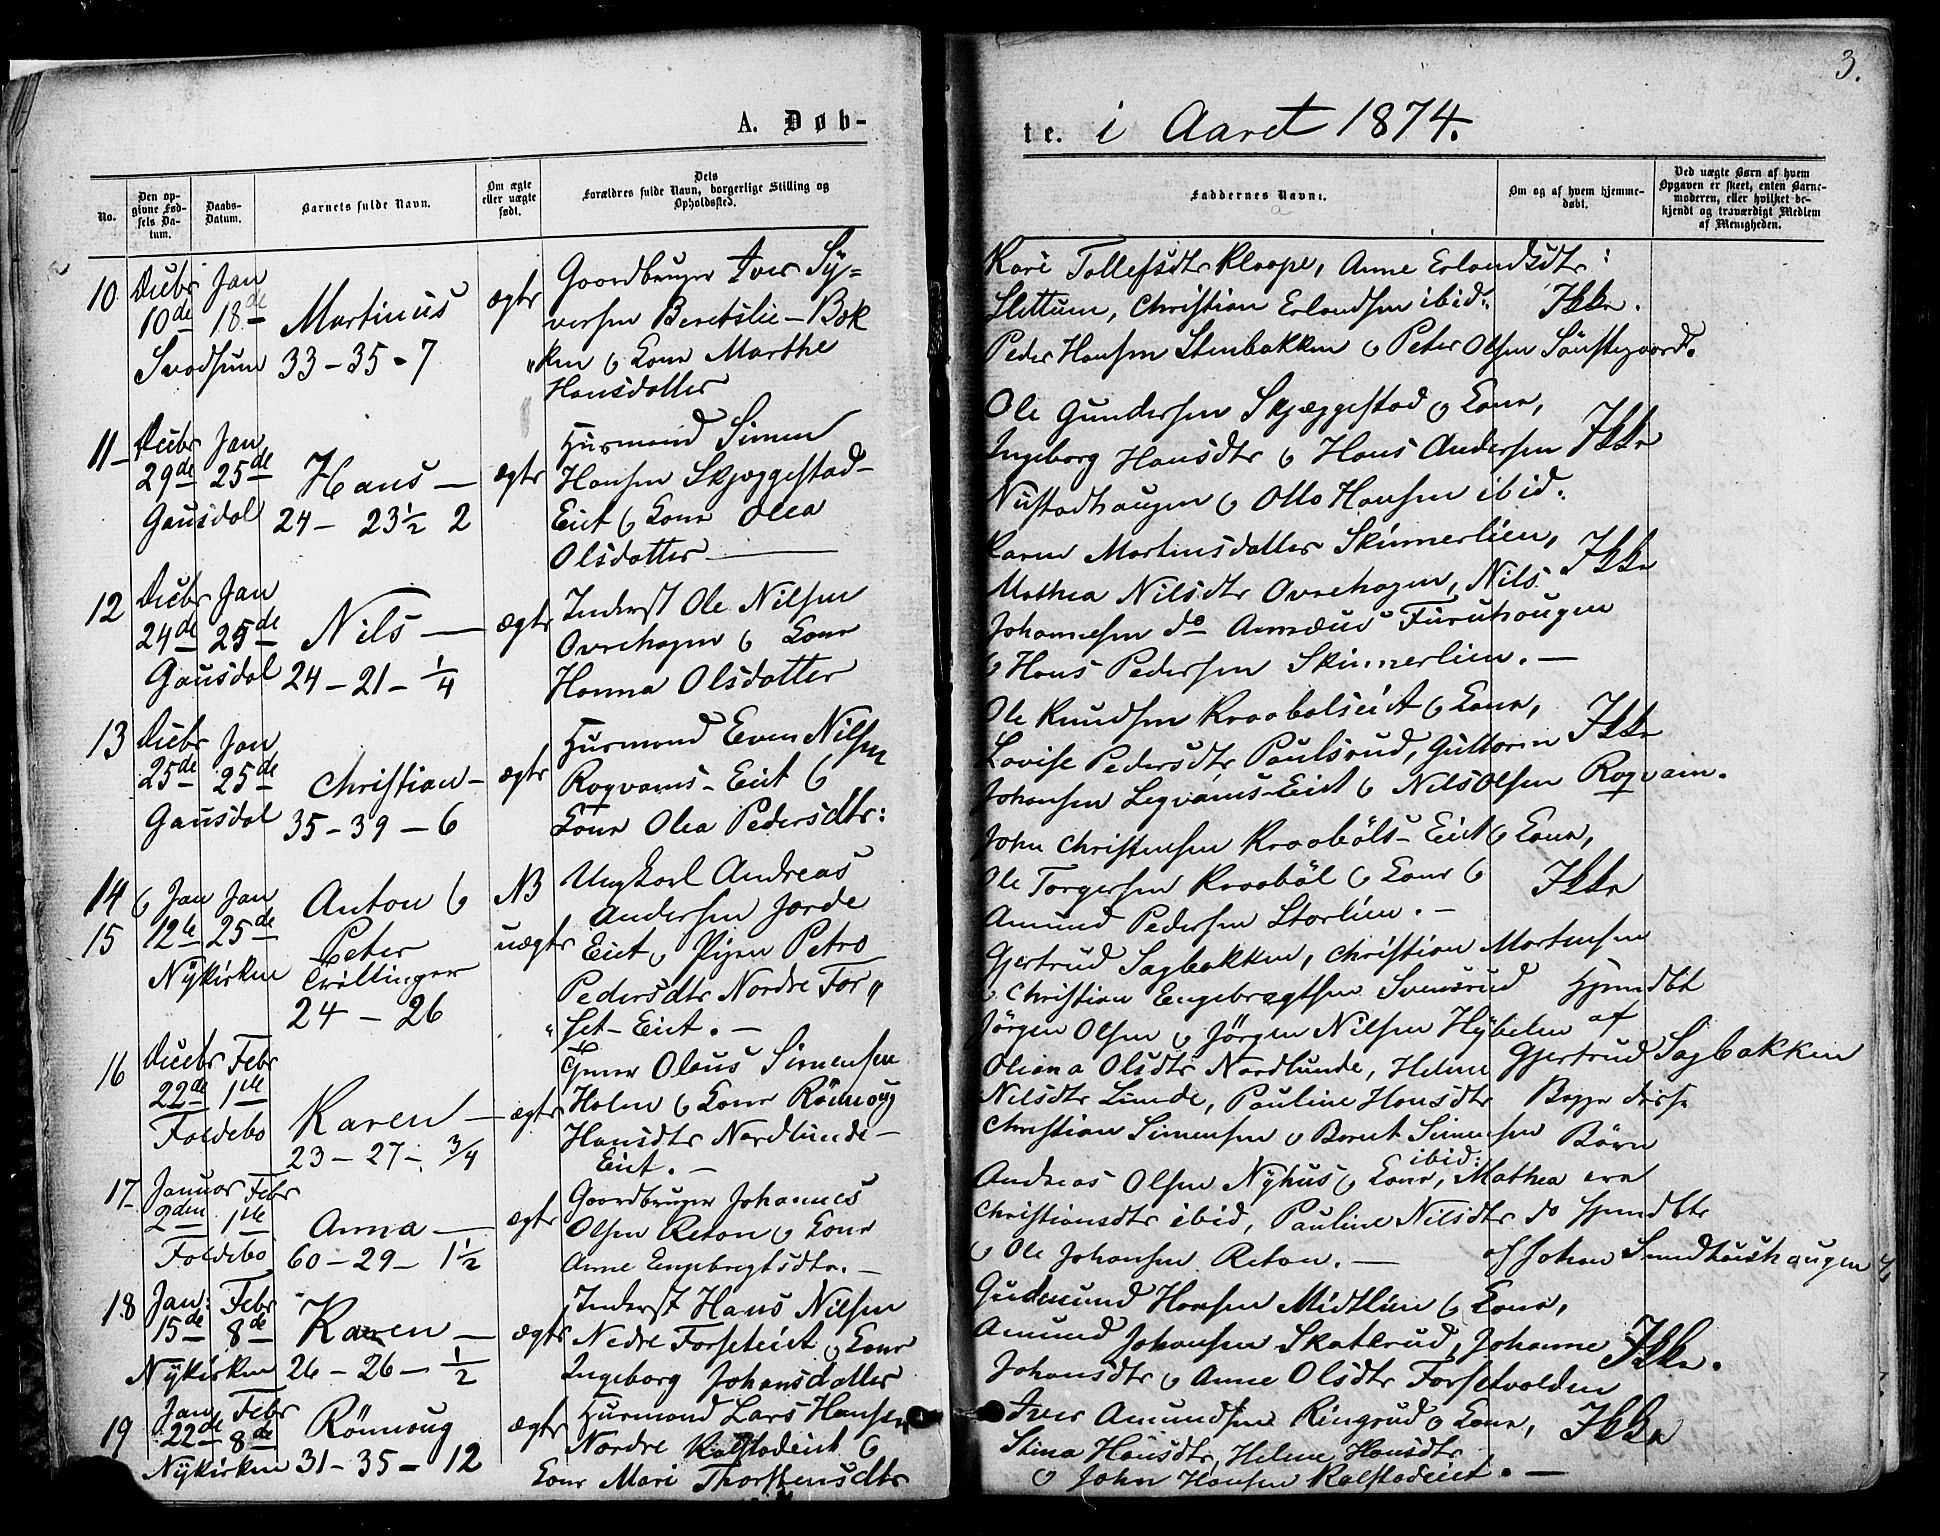 3.
A. Døb-
te. i Aaret 1874.
No.
Den op-
givne Fød-
sels Da-
tum.
Daabs-
Datum.
Barnets fulde Navn.
Om ægte
eller uægte
født.
Dets
Forældres fulde Navn, borgerlige Stilling og
Opholdssted.
Faddernes Navne.
Om og af hvem hjemme-
døbt.
Ved uægte Børn af hvem
Opgaven er skeet, enten Barne-
moderen, eller hvilket be-
kjendt og troværdigt Medlem
af Menigheden.
10 Decbr Jan
10de 18de Martinus ægte
Svadsum 33-35-7
Gaardbruger Iver Sy=
versen Beretslie-Bak
"ken & Kone Marthe
Hansdatter
Kari Tollefsdtr Klaape, Anne Erlandsdtr:
Slettum, Christian Erlandsen ibid: Ikke.
Peder Hansen Stenbakken & Peter Olsen Sönstegaard.
11- Decbr Jan
29de 25de Hans- ægte
Gausdal 24- 23½ 2
Husmand Simen
Hansen Skjæggestad-
Eiet & Kone Olea
Olsdatter
Ole Gundersen Skjæggestad & Kone,
Ingeborg Hansdtr & Hans Andersen Ikke
Nustadhaugen & Otto Hansen ibid.
12 Decbr Jan
24de 25de Nils- ægte
Gausdal 24-21-¼
Inderst Ole Nilsen
Ovrehagen & Kone
Hanna Olsdatter
Karen Martinsdatter Skinnerlien, Ikke
Mathea Nilsdtr Ovrehagen, Nils
Johannesen do Amæus Furuhaugen
& Hans Pedersen Skinnerlien.-
13 Decbr Jan
25de 25de Christian- ægte
Gausdal 35-39-6
Husmand Even Nilsen
Roqvams-Eiet &
Kone Olea Pedersdtr:
Ole Knudsen Kraabølseiet & Kone, Ikke
Lovise Pedersdtr Paulsrud, Guttorm
Johansen Legvams-Eiet & Nils Olsen Roqvam.
14 & Jan Jan Anton & NB
15 12te 25de Peter uægte
Nykirken Tvillinger
24-26
Ungkarl Andreas
Andersen Jorde
Eiet & Pigen Petro
Pedersdtr Nordre For"
"set-Eiet.-
John Christensen Kraaböls-Eiet & Kone,
Ole Torgersen Kraaböl & Kone & Ikke
Amund Pedersen Storlien.-
Gjertrud Sagbakken, Christian Mortensen
& Christian Engebragtsen Svensrud Hjemdbt
Jörgen Olsen & Jörgen Nilsen Hÿbelen af
Gjertrud Sagbakken
Begge disse
Børn
ere
Hjemdbte
af Johan Smedhaushaugen
16 Decbr Febr
22de 1ste Karen- ægte
Follebo 23-27-¾
Gjører Olaus Simensen
Holen & Kone Rönnoug
Hansdtr Nordlunde-
Eiet.-
Oliana Olsdtr Nordlunde, Helene
Nilsdtr Lunde, Pauline Hansdtr
Christian Simensen & Bernt Simensen
ibid:
17- Januar Febr
2den 1ste Anna- ægte
Follebo 60-29-1½
Gaardbruger Johannes
Olsen Reton & Kone
Anne Engebregtsdtr.-
Andreas Olsen Nyhus & Kone, Mathea
Christiansdtr ibid, Pauline Nilsdtr do
& Ole Johansen Reton.-
18 Jan: Febr
15de 8de Karen- ægte
Nykirken 26-26-½
Inderst Hans Nilsen
Nedre Forseteiet & Kone
Ingeborg Johansdatter
Gudmund Hansen Midtlien & Kone,
Amund Johansen Skatterud, Johanne Ikke.
Johansdtr & Anne Olsdtr Forsetvolden
19 Jan Febr
22de 8de Rönnoug ægte
Nykirken 31-35-12
Husmand Lars Hansen
Nordre Kalstadeiet &
Kone Mari Thorstensdtr
Iver Amundsen Ringrud & Kone, Ikke
Stina Hansdtr, Helene Hansdtr
& John Hansen Kalstadeiet.-